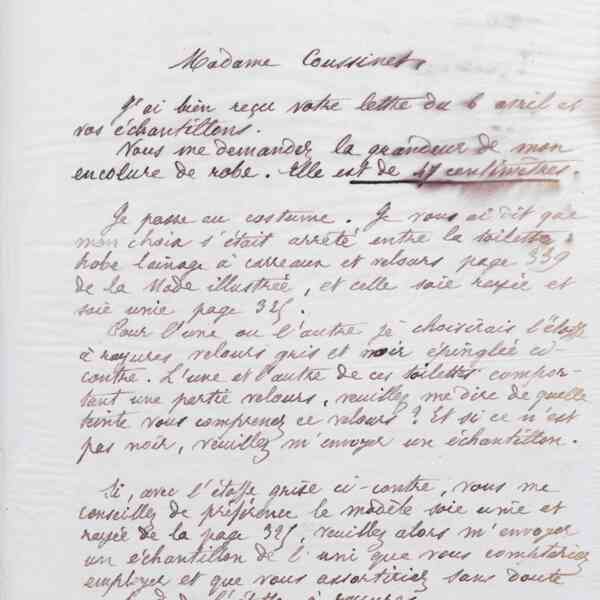 Madame Coussinet,
J'ai bien reçu votre lettre du 6 avril et
vos échantillons.
Vous me demandez la grandeur de mon
encolure de robe. Elle est de 47 centimètres.
Je passe au costume. Je vous ai dit que
mon choix s'était arrêté entre la toilette
robe lainage à carreaux et velours page 339
de la Mode illustrée, et celle soie rayée et
soie unie page 325.
Pour l'une ou l'autre je choisirais l'étoffe
à rayures velours gris et noir épinglée ci-
contre. L'une et l'autre de ces toilettes compor-
tant une partie velours, veuillez me dire de quelle
teinte vous comprenez ce velours ? Et si ce n'est
pas noir, veuillez m'envoyer un échantillon.
Si, avec l'étoffe grise ci-contre, vous me
conseillez de préférence le modèle soie unie et
rayée de la page 325, veuillez alors m'envoyer
un échantillon de l'uni que vous compteriez
employer et que vous assortiriez sans doute